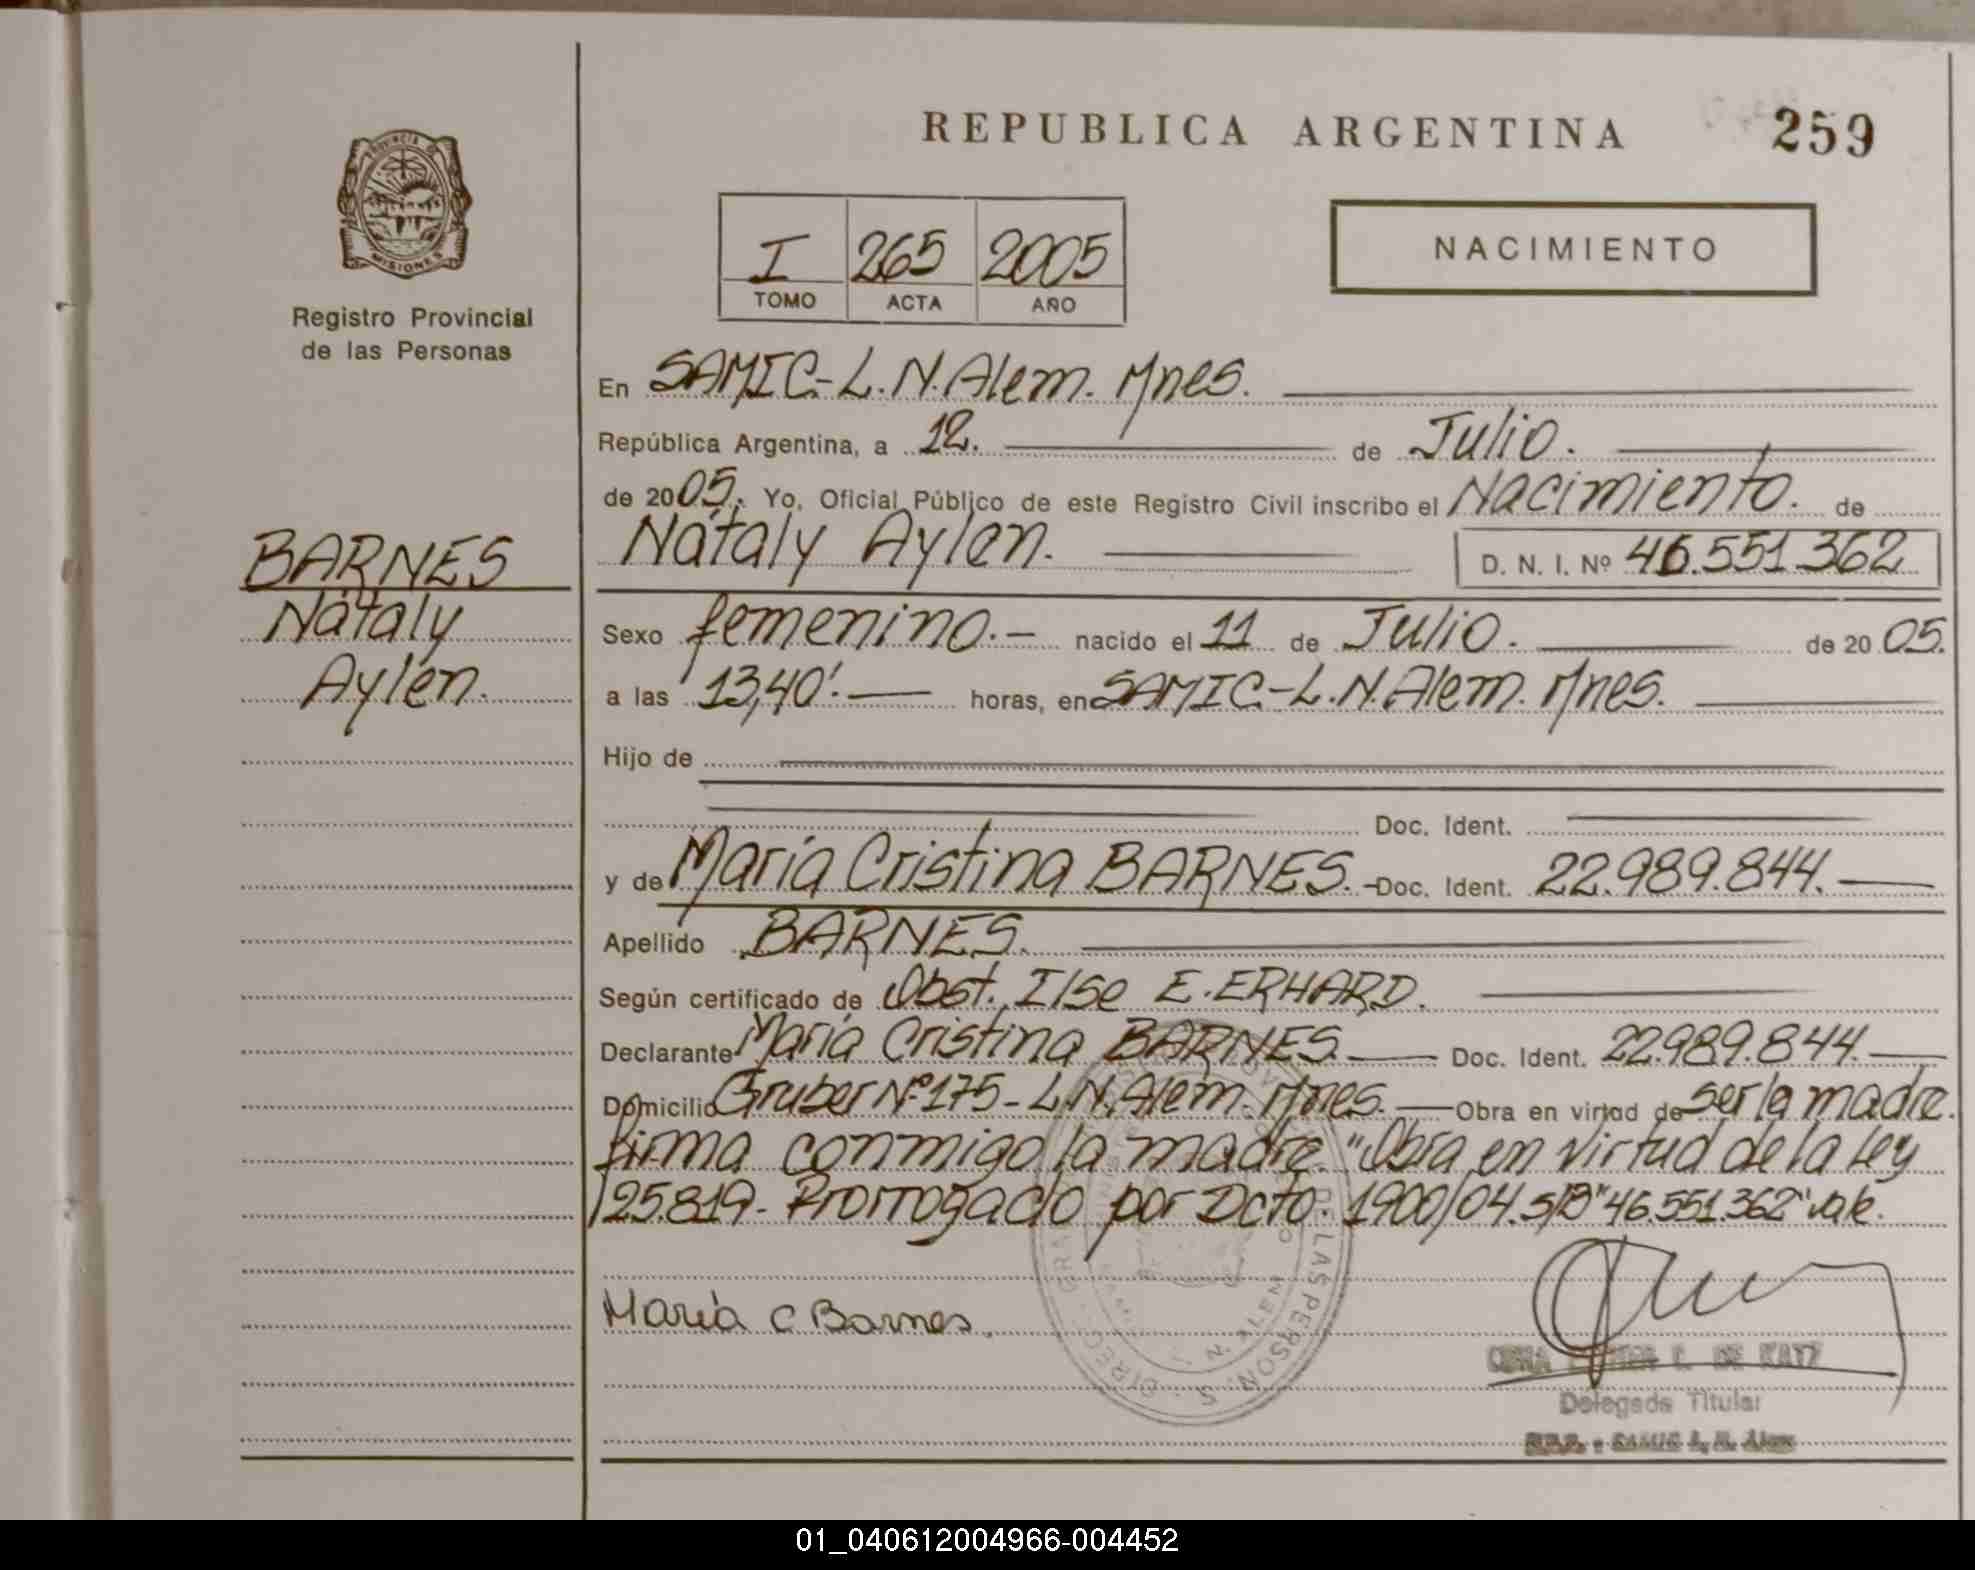 REPUBLICA ARGENTINA 259
PROVINCIA DE
MISIONES
Registro Provincial
de las Personas
I 265 2005
TOMO ACTA AÑO
NACIMIENTO
En SAMIC.-L.N.Alem. Mnes.
República Argentina, a 12. de Julio.
de 2005. Yo, Oficial Público de este Registro Civil inscribo el Nacimiento. de
Nátaly Aylen. D. N. I. Nº 46.551.362
BARNES
Nátaly
Aylén.
Sexo femenino.- nacido el 11 de Julio. de 20 05.
a las 13,40'. horas, en SAMIC.-L.N.Alem. Mnes.
Hijo de
Doc. Ident.
y de María Cristina BARNES.- Doc. Ident. 22.989.844.
Apellido BARNES.
Según certificado de Obst. Ilse E. ERHARD.
Declarante María Cristina BARNES. Doc. Ident. 22.989.844.
Domicilio Gruber Nº 175-L.N.Alem. Mnes. Obra en virtud de ser la madre.
firma conmigo la madre. "Obra en virtud de la Ley
25.819- Prorrogado por Dcto. 1900/04. S/B "46.551.362" vale.
María C Barnes.
DE KATZ
Delegada Titular
SAMIC L. N. Alem
01_040612004966-004452